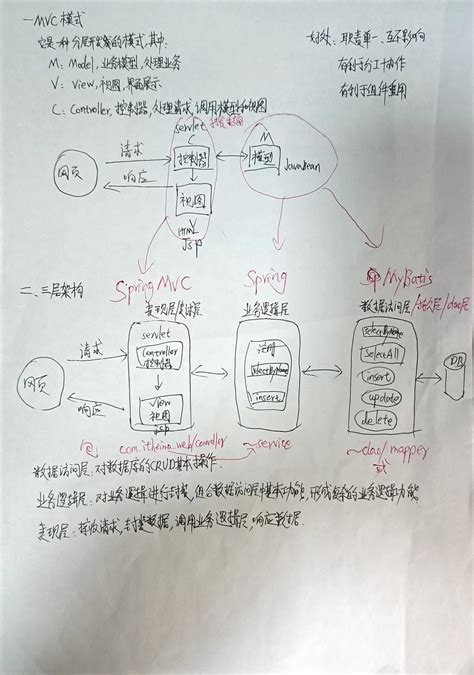 一 MVC 模式
它是一种分层开发的模式,其中:
M: Model, 业务模型, 处理业务
V: View, 视图, 界面展示
C: Controller, 控制器, 处理请求, 调用模型和视图
好处: 职责单一, 互不影响
有利于分工协作
有利于组件重用
servlet
C
控制器
M
模型
JavaBean
网页
请求
响应
视图
V
HTML
Jsp
二、三层架构
Spring MVC
Spring
MyBatis
表现层
业务逻辑层
数据访问层/持久层/dao层
网页
请求
响应
servlet
Controller
控制器
View
视图
jsp
注册
selectByName
insert
selectByName
selectAll
insert
update
delete
DB
com.itheima.web/controller
~service
~dao/mapper
数据访问层: 对数据库的CRUD基本操作.
业务逻辑层: 对业务逻辑进行封装, 组合数据访问层中基本功能, 形成复杂的业务逻辑功能.
表现层: 接收请求, 封装数据, 调用业务逻辑层, 响应数据.